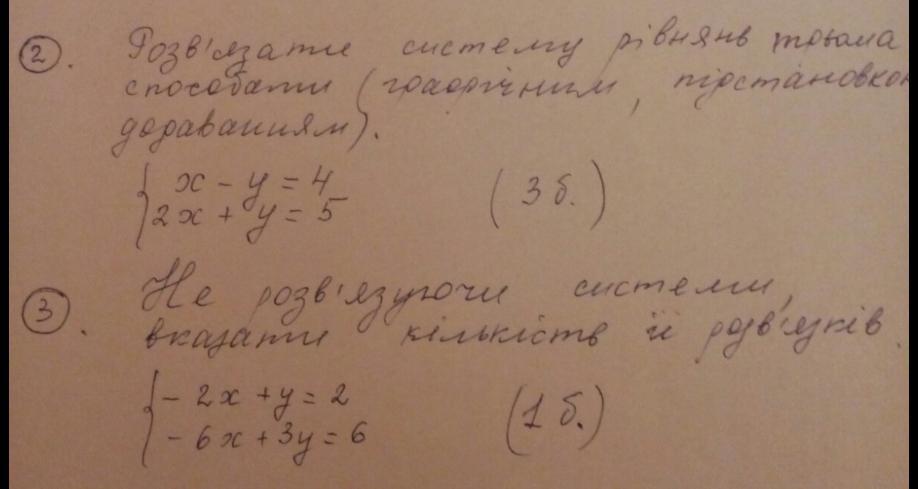 2. Розв'язати систему рівнянь трьома
способами (графічним, підстановкою
додаванням).
{ x - y = 4
2x + y = 5 (3 б.)
3. Не розв'язуючи системи,
вказати кількість її розв'язків.
{ - 2x + y = 2
- 6x + 3y = 6 (1 б.)